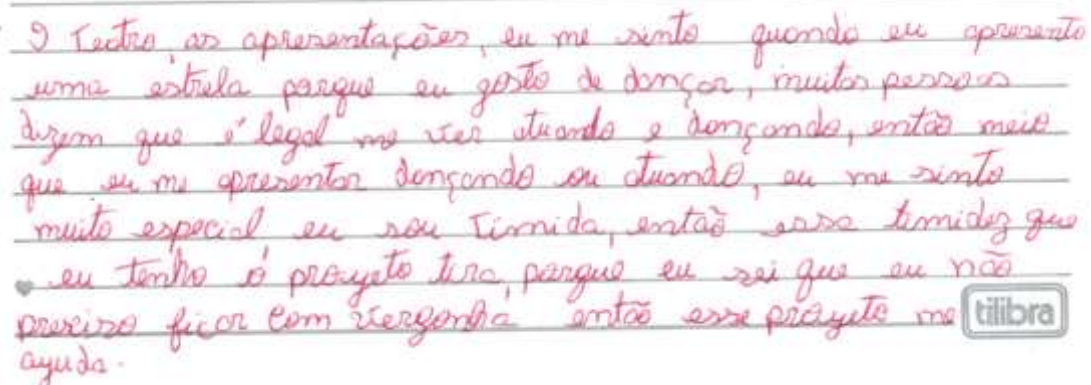 O Teatro, as apresentações, eu me sinto quando eu apresento
uma estrela porque eu gosto de dançar, muitas pessoas
dizem que é legal me ver atuando e dançando, então meio
que eu me apresentar dançando ou atuando, eu me sinto
muito especial eu sou Timida, então essa timidez que
eu tenho o proyeto tira, porque eu sei que eu não
preciso ficar com vergonha então esse proyeto me
ayuda.
tilibra